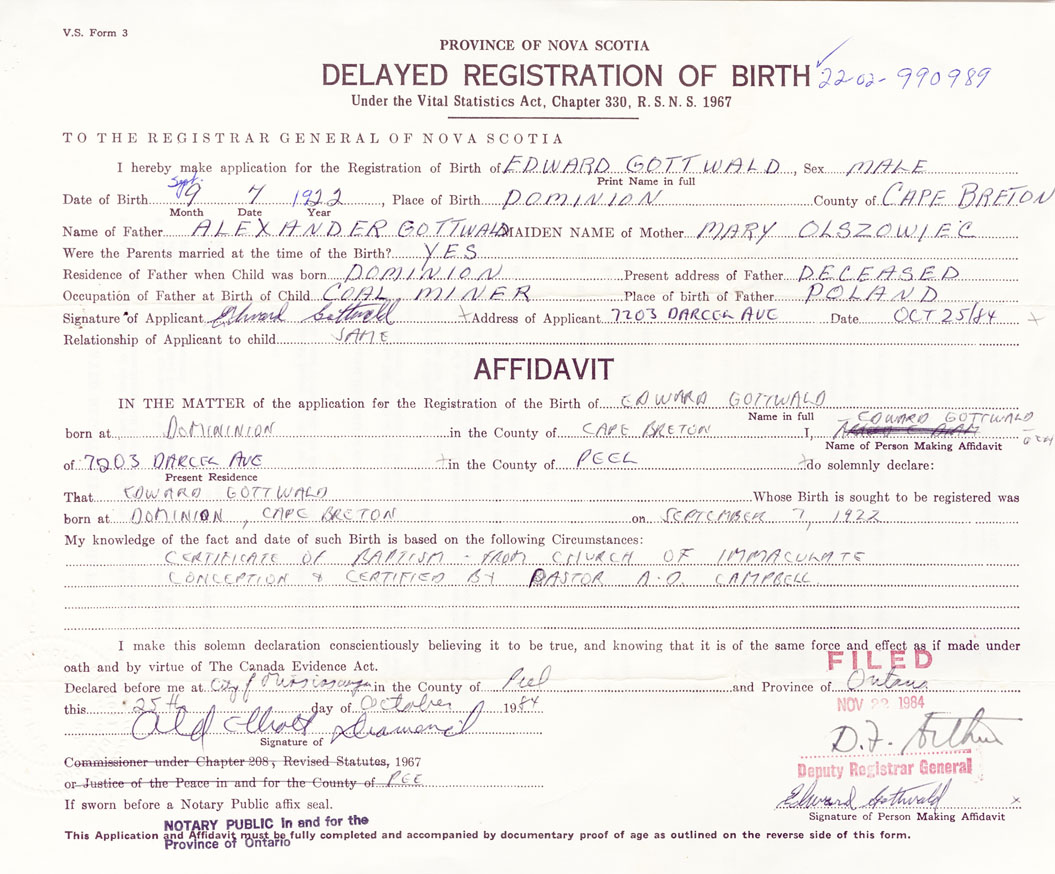 V.S. Form 3
PROVINCE OF NOVA SCOTIA
DELAYED REGISTRATION OF BIRTH 22-02-990989
Under the Vital Statistics Act, Chapter 330, R.S.N.S. 1967
TO THE REGISTRAR GENERAL OF NOVA SCOTIA
I hereby make application for the Registration of Birth of EDWARD GOTTWALD, Sex MALE
Print Name in full
Date of Birth Sept. 9 7 1922, Place of Birth DOMINION County of CAPE BRETON
Month Date Year
Name of Father ALEXANDER GOTTWALD MAIDEN NAME of Mother MARY OLSZOWIEC
Were the Parents married at the time of the Birth? YES
Residence of Father when Child was born DOMINION Present address of Father DECEASED
Occupation of Father at Birth of Child COAL MINER Place of birth of Father POLAND
Signature of Applicant Edward Gottwald x Address of Applicant 7203 DARCEL AVE Date OCT 25/84 x
Relationship of Applicant to child SAME
AFFIDAVIT
IN THE MATTER of the application for the Registration of the Birth of EDWARD GOTTWALD
Name in full
born at DOMININION in the County of CAPE BRETON I, EDWARD GOTTWALD
Name of Person Making Affidavit
of 7203 DARCEL AVE in the County of PEEL do solemnly declare:
Present Residence
That EDWARD GOTTWALD Whose Birth is sought to be registered was
born at DOMINION, CAPE BRETON on SEPTEMBER 7, 1922
My knowledge of the fact and date of such Birth is based on the following Circumstances:
CERTIFICATE OF BAPTISM - FROM CHURCH OF IMMACULATE
CONCEPTION & CERTIFIED BY PASTOR A.D. CAMPBELL
I make this solemn declaration conscientiously believing it to be true, and knowing that it is of the same force and effect as if made under
oath and by virtue of The Canada Evidence Act.
FILED
Declared before me at City of Mississauga in the County of Peel and Province of Ontario
this 25th day of October 1984
NOV 22 1984
Elliott Diamond
Signature of
D.F. Arthur
Commissioner under Chapter 208, Revised Statutes, 1967
Deputy Registrar General
or Justice of the Peace in and for the County of PEE
Edward Gottwald x
If sworn before a Notary Public affix seal.
Signature of Person Making Affidavit
NOTARY PUBLIC in and for the
This Application and Affidavit must be fully completed and accompanied by documentary proof of age as outlined on the reverse side of this form.
Province of Ontario